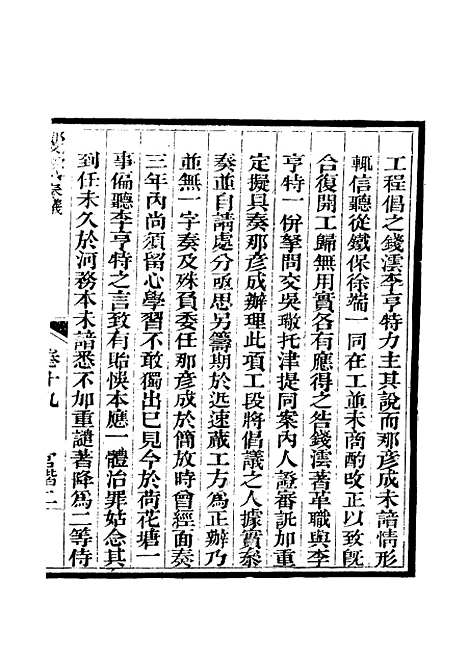 工程倡之錢澐李亨特力主其說而那彥成未諳情形
輒信聽從鐵保徐端一同在工並未商酌改正以致旣
合復開工歸無用實各有應得之咎錢澐著革職與李
亨特一併拏問交吳璥托津提同案內人證審訊加重
定擬具奏那彥成辦理此項工段將倡議之人據實叅
奏並自請處分亟思另籌期於迅速蕆工方為正辦乃
並無一字奏及殊負委任那彥成於簡放時曾經面奏
三年內尚須留心學習不敢獨出己見今於荷花塘一
事偏聽李亨特之言致有貽悞本應一體治罪姑念其
到任未久於河務本未諳悉不加重譴著降為二等侍
卷十九